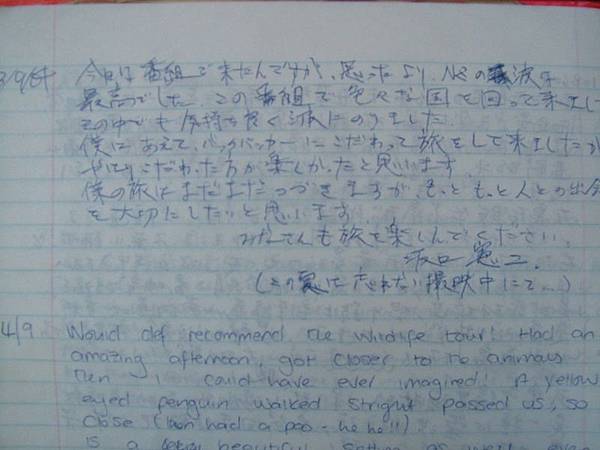 今日は番組で来たんですが、思ったより、NZの波は
最高でした。この番組で色々な国を回って来まし
その中でも気持ち良く波にのりました
僕はあえて、バックパッカーにこだわって旅をして来ましたが
やはりこだわった方が楽しかったと思います
僕の旅はまだまだつづきますが、もっともっと人との出会
を大切にしたいと思います
みなさんも旅を楽しんでください。
坂口憲二.
(この は忘れない撮映中にて…)
4/9 Would def recommend the wildlife tour! Had an
amazing afternoon, got closer to the animals
then I could have ever imagined! A yellow
eyed penguin walked stright passed us, so
close (then had a poo - he he!!)
is a beautiful setting as well